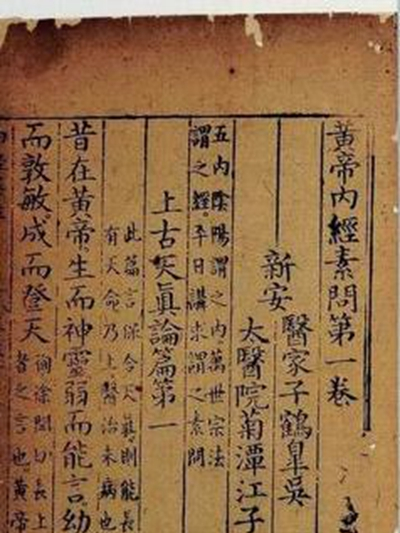 黃帝內經素問第一卷
新安醫家子鶴皐吳
太醫院菊潭江子
五內陰陽謂之內萬世宗法
謂之經平日講求謂之素問
上古天真論篇第一
此篇言保合天真則能長
有天命乃上醫治未病也
昔在黃帝生而神靈弱而能言幼
而敦敏成而登天
徇徐問切長上
者之言也黃帝